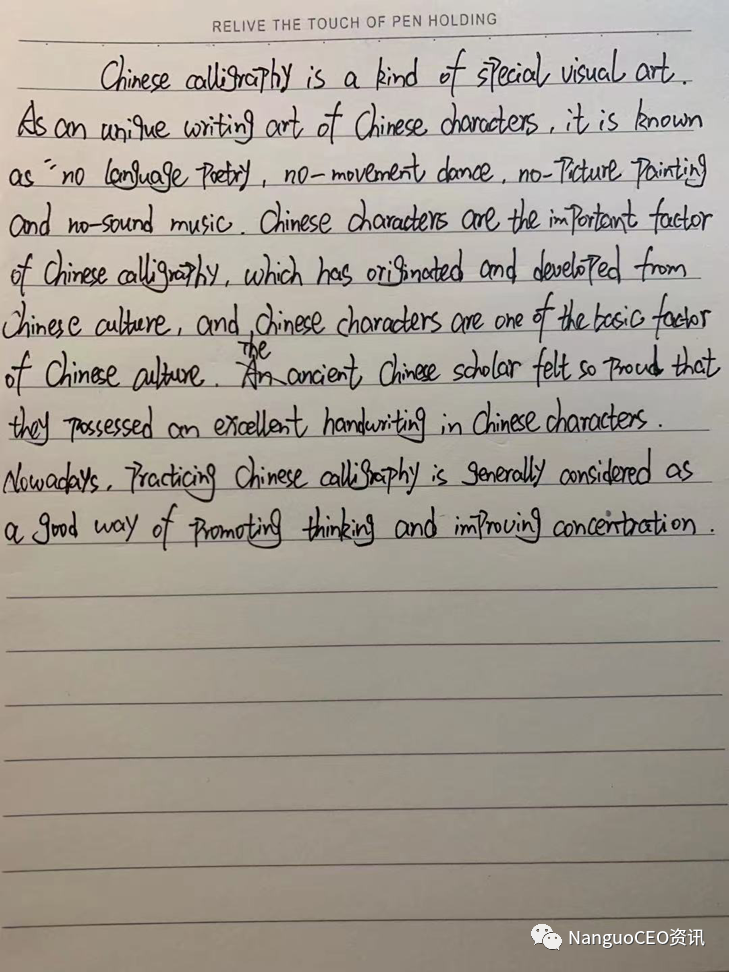 RELIVE THE TOUCH OF PEN HOLDING
Chinese calligraphy is a kind of special visual art.
As an unique writing art of Chinese characters, it is known
as "no language poetry, no-movement dance, no-picture painting
and no-sound music. Chinese characters are the important factor
of Chinese calligraphy, which has originated and developed from
Chinese culture, and Chinese characters are one of the basic factor
of Chinese culture. The ancient Chinese scholar felt so proud that
they possessed an excellent handwriting in Chinese characters.
Nowadays, practicing Chinese calligraphy is generally considered as
a good way of promoting thinking and improving concentration.
NanguoCEO资讯